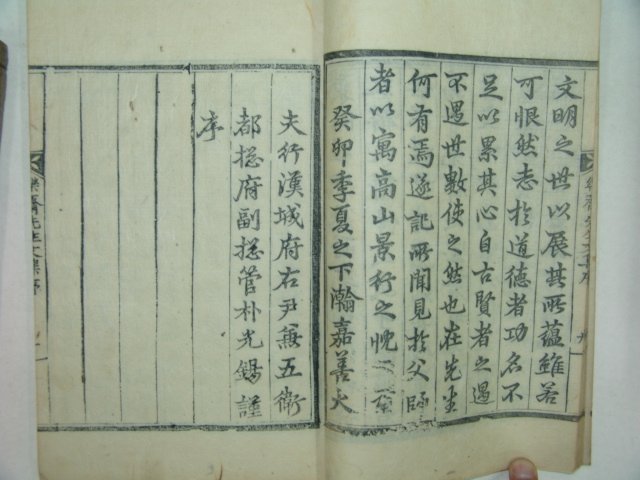 文明之世以展其所蘊雖若
可恨然志於道德者功名不
足以累其心自古賢者之遇
不遇世數使之然也在先生
何有焉遂記所聞見於父師
者以寓高山景行之忱
癸卯季夏之下瀚嘉善大
夫行漢城府右尹兼五衛
都摠府副摠管朴光錫謹
序
樂齋先生文集序